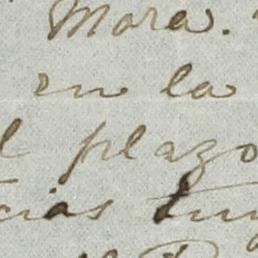 Mora.
en la
l plazo
cias